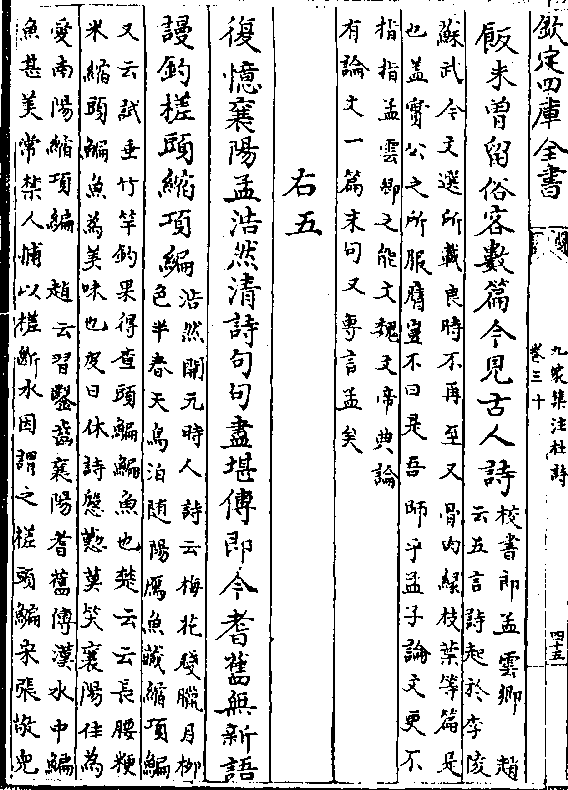 欽定四庫全書
九家集注杜詩
卷三十
四十五
飯未曽留俗客數篇今見古人詩
校書郎孟雲卿 趙
云五言詩起於李陵
蘇武今文選所載良時不再至又骨肉緣枝葉等篇是
也盖實公之所服膺寧不曰是吾師乎孟子論文更不
指指孟雲卿之能文魏文帝典論
有論文一篇末句又專言孟矣
右五
復憶襄陽孟浩然清詩句句盡堪傳即今耆舊無新語
謾釣槎頭縮項鯿
浩然開元時人詩云梅花殘臘月柳
色半春天鳥泊随陽鴈魚藏縮項鯿
又云試垂竹竿釣果得查頭鯿鯿魚也楚云云長腰粳
米縮頭鯿魚為美味也皮日休詩慇懃莫笑襄陽住為
愛南陽縮項鯿 趙云習鑿齒襄陽耆舊傳漢水中鯿
魚甚美常禁人捕以槎断水因謂之槎頭鯿宋張敬兒